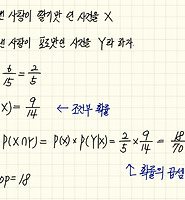 번 사람이 딸기맛 인 사건을 X
번 사람이 포도맛인 사건을 Y라 하자.
6/15 = 2/5
X) = 9/14 ← 조건부 확률
P(X∩Y) = P(X) × P(Y|X) = 2/5 × 9/14 = 18/70
↑ 확률의 곱셈
op = 18